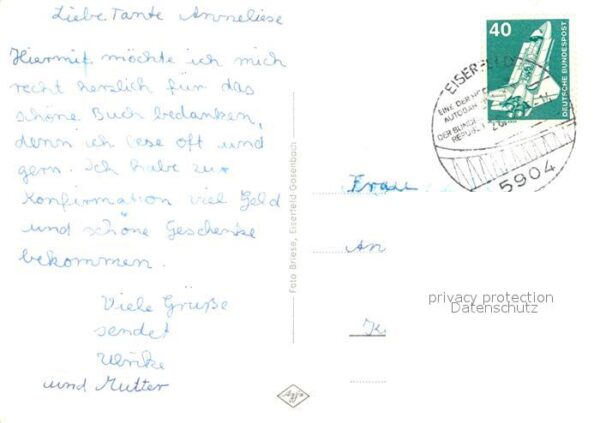 Liebe Tante Anneliese
Hiermit möchte ich mich
recht herzlich für das
schöne Buch bedanken,
denn ich lese oft und
gern. Ich habe zur
Konfirmation viel Geld
und schöne Geschenke
bekommen.
Viele Grüße
sendet
Ulrike
und Mutter
Foto Briese, Eiserfeld Gosenbach
Agfa
40
DEUTSCHE BUNDESPOST
EISERFELD
EINE DER
AUTOBAHN
DER BUNDES
REPUBLIK
5904
Frau
An
privacy protection
Datenschutz